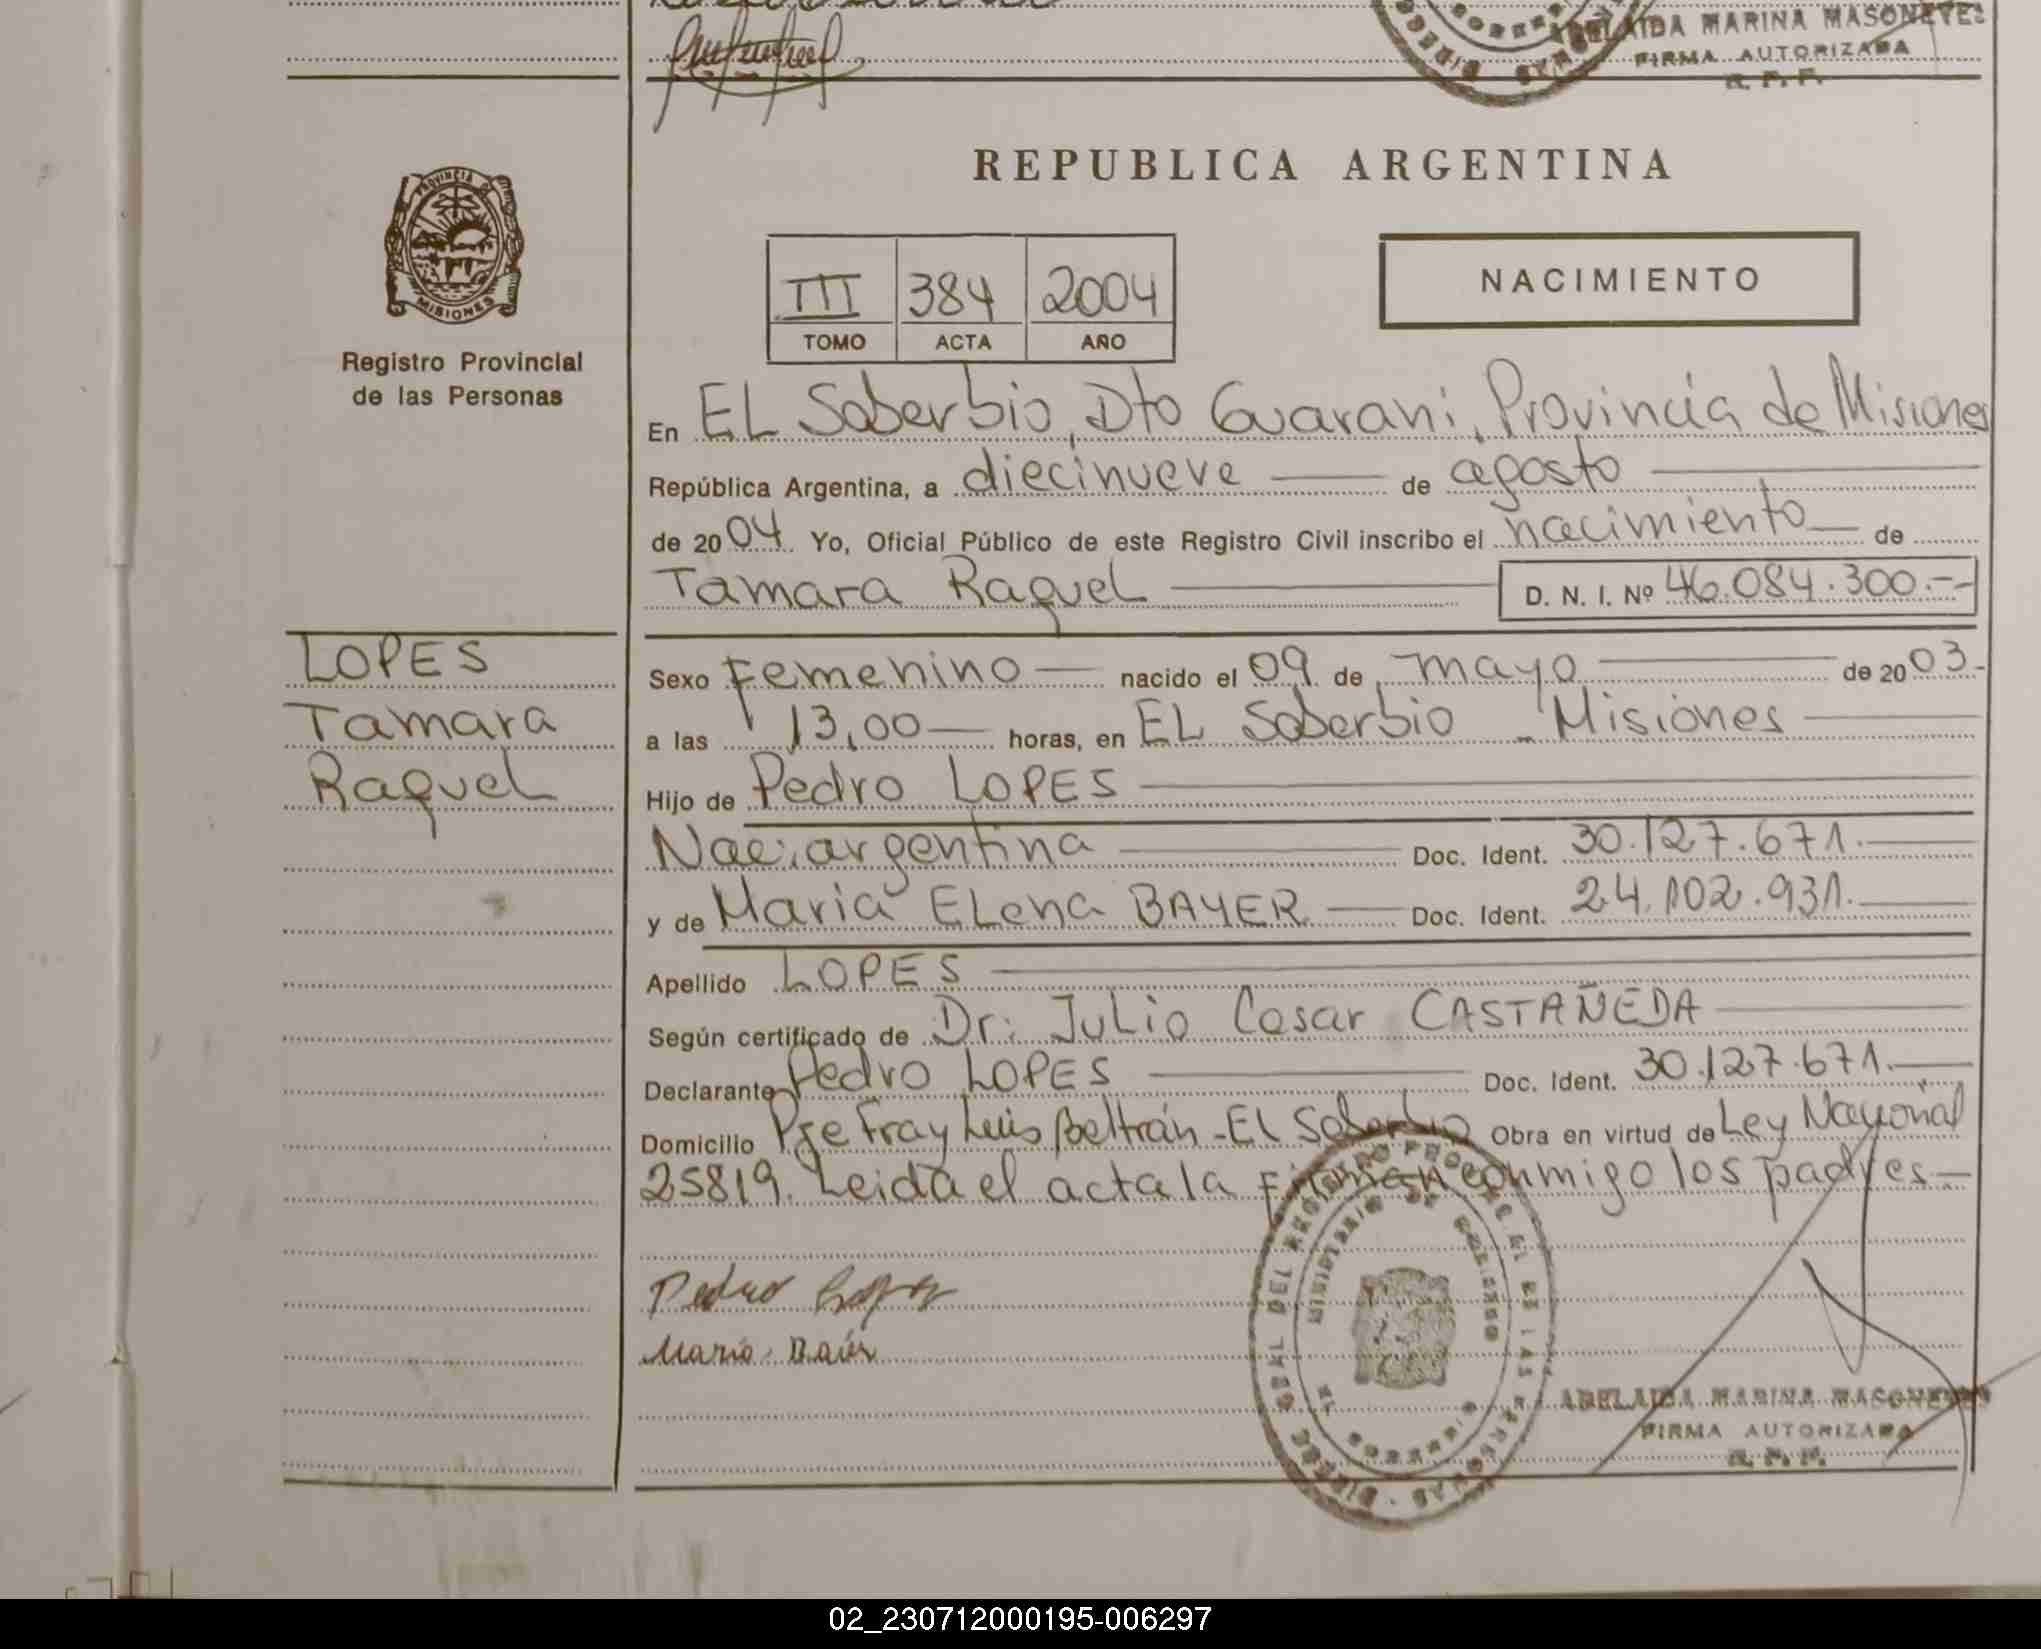 ADELAIDA MARINA MASONEVES
FIRMA AUTORIZADA
R. P. P.
PROVINCIA DE
MISIONES
Registro Provincial
de las Personas
REPUBLICA ARGENTINA
III 384 2004
TOMO ACTA AÑO
NACIMIENTO
En EL Soberbio, Dto Guarani, Provincia de Misiones
República Argentina, a diecinueve de agosto
de 2004. Yo, Oficial Público de este Registro Civil inscribo el nacimiento de
Tamara Raquel D. N. I. Nº 46.084.300.--
LOPES
Tamara
Raquel
Sexo Femenino nacido el 09 de mayo de 2003.
a las 13,00 horas, en EL Soberbio - Misiones
Hijo de Pedro LOPES
Nac: argentina Doc. Ident. 30.127.671.
y de Maria ELena BAYER Doc. Ident. 24.102.931.
Apellido LOPES
Según certificado de Dr: JuLio Cesar CASTAÑEDA
Declarante Pedro LOPES Doc. Ident. 30.127.671.
Domicilio Pje Fray Luis Beltrán - El Soberbio Obra en virtud de Ley Nacional
25819. Leida el acta la Firman conmigo los padres
Pedro Lopes
Maria
MINISTERIO DE GOBIERNO
MISIONES
ADELAIDA MARINA MASONEVES
FIRMA AUTORIZADA
R. P. P.
02_230712000195-006297